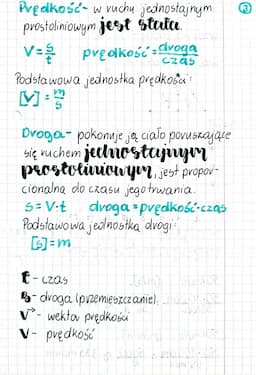 Prędkość- w ruchu jednostajnym
prostoliniowym jest stała.
V=s/t prędkość=droga/czas
Podstawowa jednostka prędkości:
[V]=m/s
Droga- pokonuje ją ciało poruszające
się ruchem jednostajnym
prostoliniowym, jest propor-
cionalna do czasu jego trwania.
s=V·t droga=prędkość·czas
Podstawowa jednostka drogi:
[s]=m
t-czas
s-droga (przemieszczanie)
V→- wektor prędkości
V- prędkość